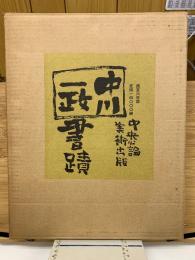 中央公論
美術出版
中川
一政
書蹟